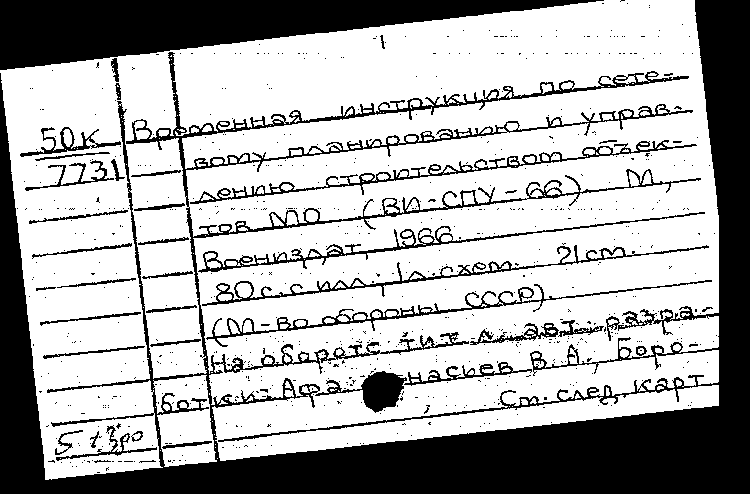 1
50К Временная инструкция по сете-
7731 вому планированию и управ-
лению строительством объек-
тов МО (ВИ-СПУ-66). М.,
Воениздат, 1966.
80 с. с илл.; 1 л. схем. 21 см.
(М-во обороны СССР).
На обороте тит. л. авт. разра-
ботки: Афанасьев В. А., Боро-
См. след. карт